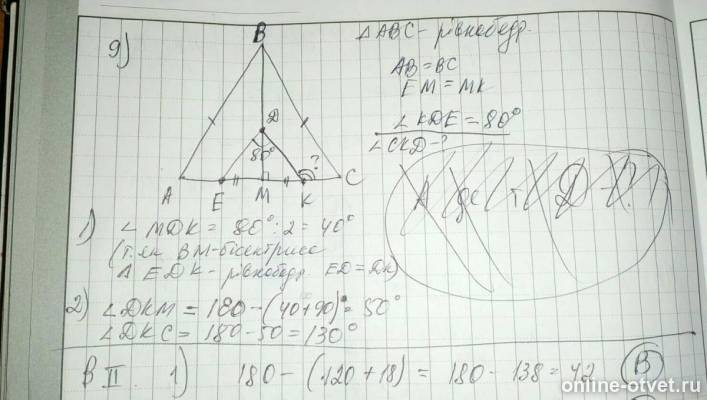 9)
B
D
80°
?
A E M K C
△ABC - рівнобедр.
AB = BC
EM = MK
∠KDE = 80°
∠CKD - ?
1) ∠MDK = 80° : 2 = 40°
(т.як BM - бісектриса
△ EDK - рівнобедр. ED = DK)
2) ∠DKM = 180 - (40+90)° = 50°
∠DKC = 180 - 50 = 130°
В II. 1) 180 - (120 + 18) = 180 - 138 = 42 (В)
online-otvet.ru